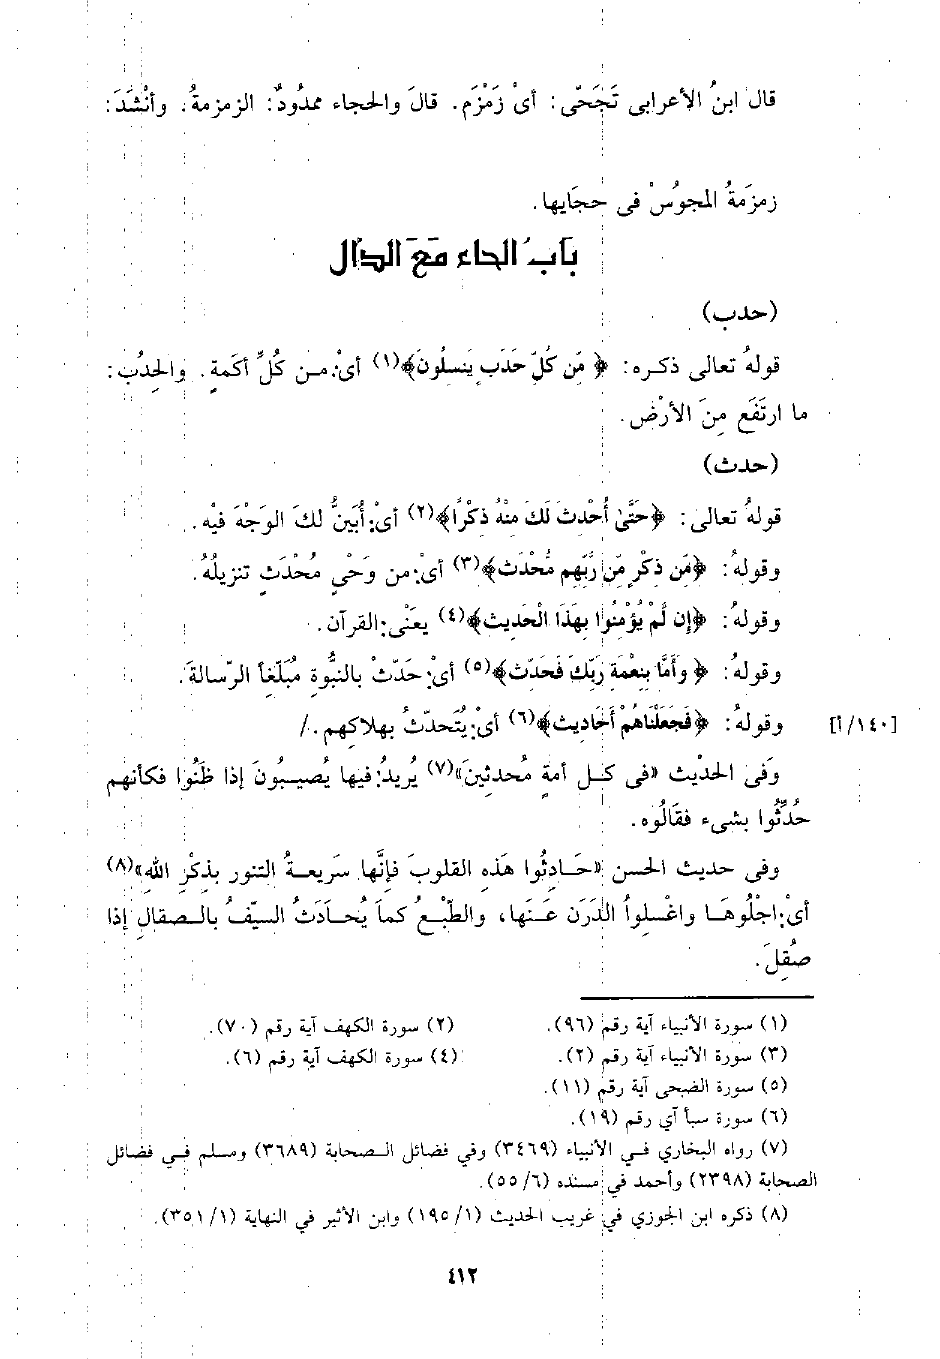 قال ابنُ الأعرابى تَجَحّى: أىْ زَمْزَم. قالَ والحجاء ممدُودٌ: الزمزمةُ. وأنْشَدَ:
زمزَمةُ المجوُسْ فى حجَايها.
بَابُ الحاء مَعَ الدال
(حدب)
قولهُ تعالى ذكـره: ﴿ مِّن كُلِّ حَدَبٍ يَنسلُونَ﴾(١) أىْ:مـن كُلِّ أكَمةٍ. والحِدُب:
ما ارتَفَع مِنَ الأرْض.
(حدث)
قولهُ تعالى: ﴿حَتَّىٰ أُحْدثَ لَكَ منْهُ ذكْرًا﴾(٢) أىْ:أُبَينُّ لكَ الوَجْهَ فيْه.
وقولهُ: ﴿مِّن ذِكْرٍ مِّن رَّبِّهِم مُّحْدَث﴾(٣) أىْ:من وَحْىٍ مُحْدَثٍ تنزيلُهُ.
وقولهُ: ﴿إِن لَّمْ يُؤْمِنُوا بِهَذَا الْحَديث﴾(٤) يعَنْى:القرآن.
وقولهُ: ﴿ وَأَمَّا بِنِعْمَة رَبِّكَ فَحَدّث﴾(٥) أىْ:حَدّثْ بالنبُّوةِ مبُلّغاً الرّسالةَ.
وقولهُ: ﴿فَجَعَلْنَاهُمْ أَحَاديث﴾(٦) أىْ:يُتَحدّثُ بهلاكِهم./ [١٤٠/أ]
وَفى الحدْيث «فى كـل أمةٍ مُحدثينَ»(٧) يُريدُ:فيها يُصيـبُونَ إذا ظَنُوا فكأنهم
حُدِّثُوا بشىء فقَالُوه.
وفى حديث الحسن «حَـادِثُوا هَذهِ القلوبَ فإنَّها سَريعـةُ التنور بذِكْرِ اللهِ»(٨)
أىْ:اجْلُوهَـا واغْسلواُ الدَرَن عَـنَها، والطّبْعُ كماَ يُحـادَثُ السيّفُ بالـصقالِ إذا
صقُلِ.
(١) سورة الأنبياء آية رقم (٩٦). (٢) سورة الكهف آية رقم (٧٠).
(٣) سورة الأنبياء آية رقم (٢). (٤) سورة الكهف آية رقم (٦).
(٥) سورة الضحى آية رقم (١١).
(٦) سورة سبأ آي رقم (١٩).
(٧) رواه البخاري فـي الأنبياء (٣٤٦٩) وفي فضائل الـصحابة (٣٦٨٩) ومسلم فـي فضائل
الصحابة (٢٣٩٨) وأحمد في مسنده (٥٥/٦).
(٨) ذكره ابن الجوزي في غريب الحديث (١٩٥/١) وابن الأثير في النهاية (٣٥١/١).
٤١٢